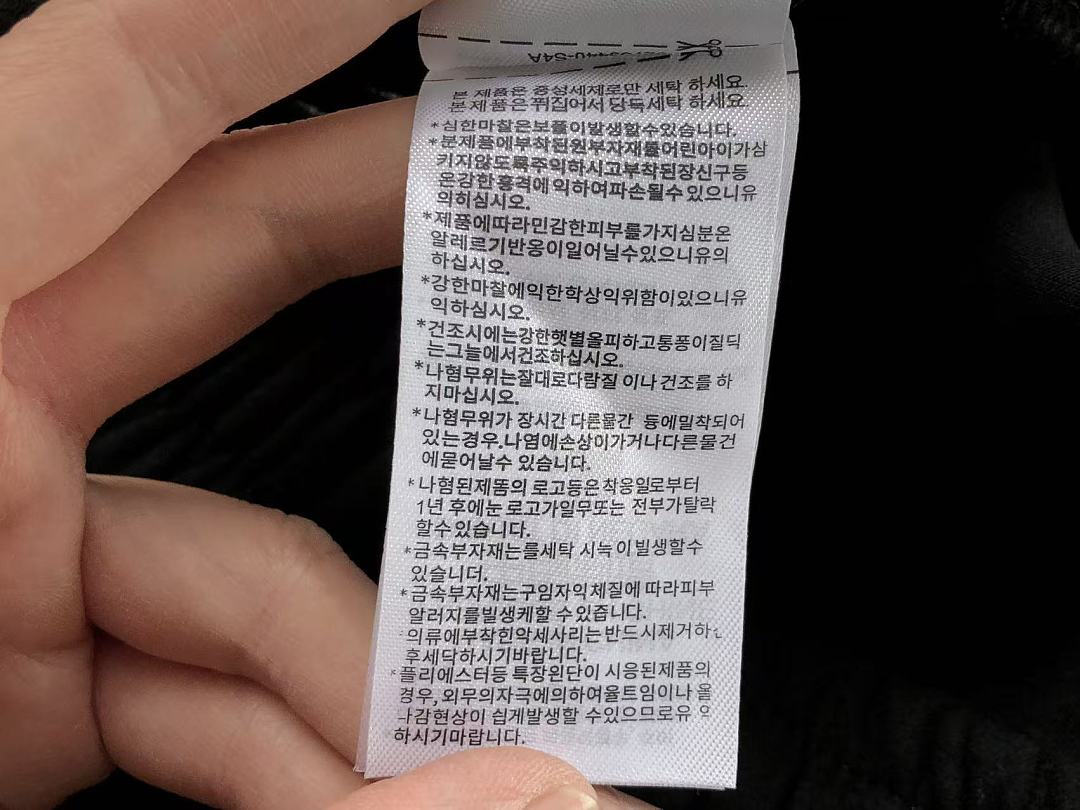 본 제품은 중성세제로만 세탁 하세요.
본 제품은 뒤집어서 단독세탁 하세요.
*심한마찰은보풀이발생할수있습니다.
*본제품에부착된원부자재를어린아이가삼
키지않도록주의하시고부착된장신구등
은강한흥격에익하여파손될수있으니유
의히심시오.
*제품에따라민감한피부를가지심분은
알레르기반응이일어닐수있으니유의
하십시오.
*강한마찰에익한학상익위함이있으니유
익하심시오.
*건조시에는강한햇별을피하고통퐁이질딕
는그늘에서건조하십시오.
*나혐무위는잘대로다람질 이나건조를 하
지마십시오.
*나혐무위가 장시간 다른물간 등에밀착되어
있는경우.나염에손상이가거나다른물건
에묻어날수 있습니다.
*나혐된제똠의 로고등은착용일로부터
1년 후에눈로고가일무또는 전부가탈락
할수있습니다.
*금속부자재는를세탁 시녹이빌생할수
있슬니더.
*금속부자재는구임자익체질에 따라피부
알러지를빌생케할 수있즙니다.
의류에부착힌악세사리는반드시제거하
후세닥하시기바랍니다.
*플리에스터등 특장왼단이 시응된제품의
경우,외무의자극에의하여울트임이나 올
나감현상이 쉽게발생할 수있으므로유
하시기마랍니다.